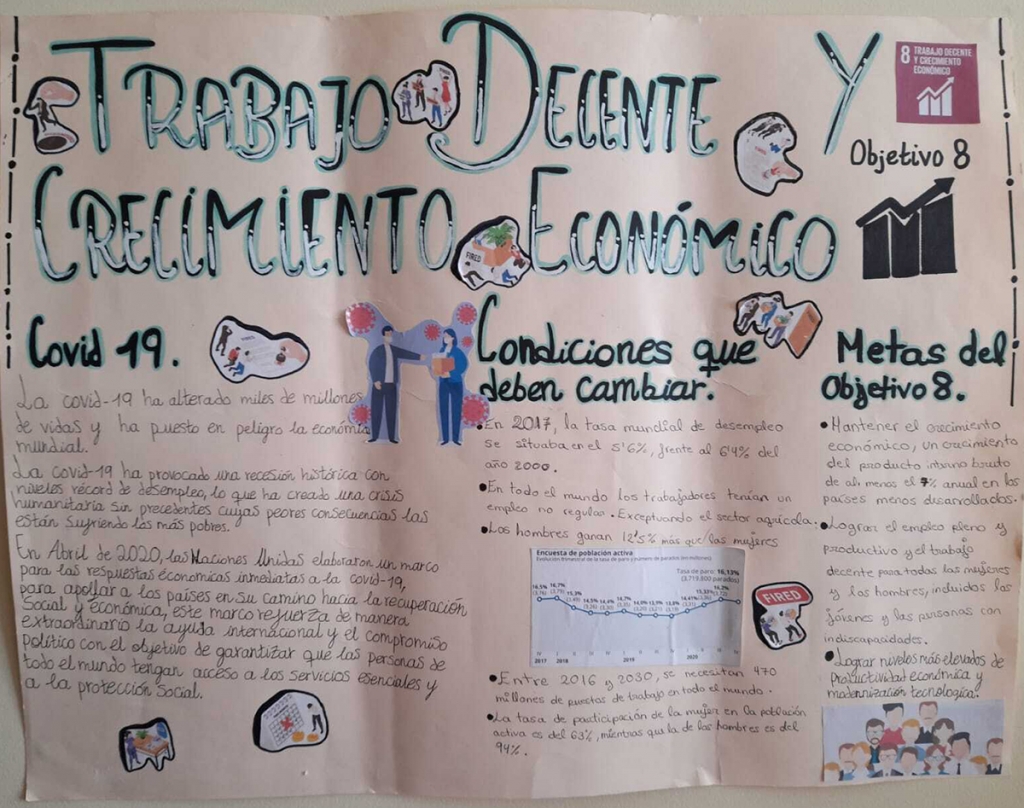 TRABAJO DECENTE Y
CRECIMIENTO ECONÓMICO
8 TRABAJO DECENTE
Y CRECIMIENTO
ECONÓMICO
Objetivo 8
FIRED
Covid 19.
La covid-19 ha alterado miles de millones
de vidas y ha puesto en peligro la economía
mundial.
La covid-19 ha provocado una recesión histórica con
niveles récord de desempleo, lo que ha creado una crisis
humanitaria sin precedentes cuyas peores consecuencias las
están sufriendo los más pobres.
En Abril de 2020, las Naciones Unidas elaboraron un marco
para las respuestas económicas inmediatas a la covid-19,
para apollar a los países en su camino hacia la recuperación
Social y económica, este marco refuerza de manera
extraordinario la ayuda internacional y el compromiso
político con el objetivo de garantizar que las personas de
todo el mundo tengan acceso a los servicios esenciales y
a la protección social.
Condiciones que
deben cambiar.
• En 2017, la tasa mundial de desempleo
se situaba en el 5'6%, frente al 6'4% del
año 2000.
• En todo el mundo los trabajadores tenían un
empleo no regular. Exceptuando el sector agrícola.
• Los hombres ganan 12'5% más que las mujeres
Encuesta de población activa
Evolución trimestral de la tasa de paro y número de parados (en millones)
Tasa de paro: 16,13%
(3.719.800 parados)
16,5% 16,7%
15,3%
2017 2018 2019 2020
FIRED
• Entre 2016 y 2030, se necesitan 470
millones de puestos de trabajo en todo el mundo.
• La tasa de participación de la mujer en la población
activa es del 63%, mientras que la de los hombres es del
94%.
Metas del
Objetivo 8.
• Mantener el crecimiento
económico, un crecimiento
del producto interno bruto
de al menos el 7% anual en los
países menos desarrollados.
• Lograr el empleo pleno y
productivo y el trabajo
decente para todas las mujeres
y los hombres, incluidos los
jóvenes y las personas con
indiscapacidades.
• Lograr niveles más elevados de
productividad económica y
modernización tecnológica.